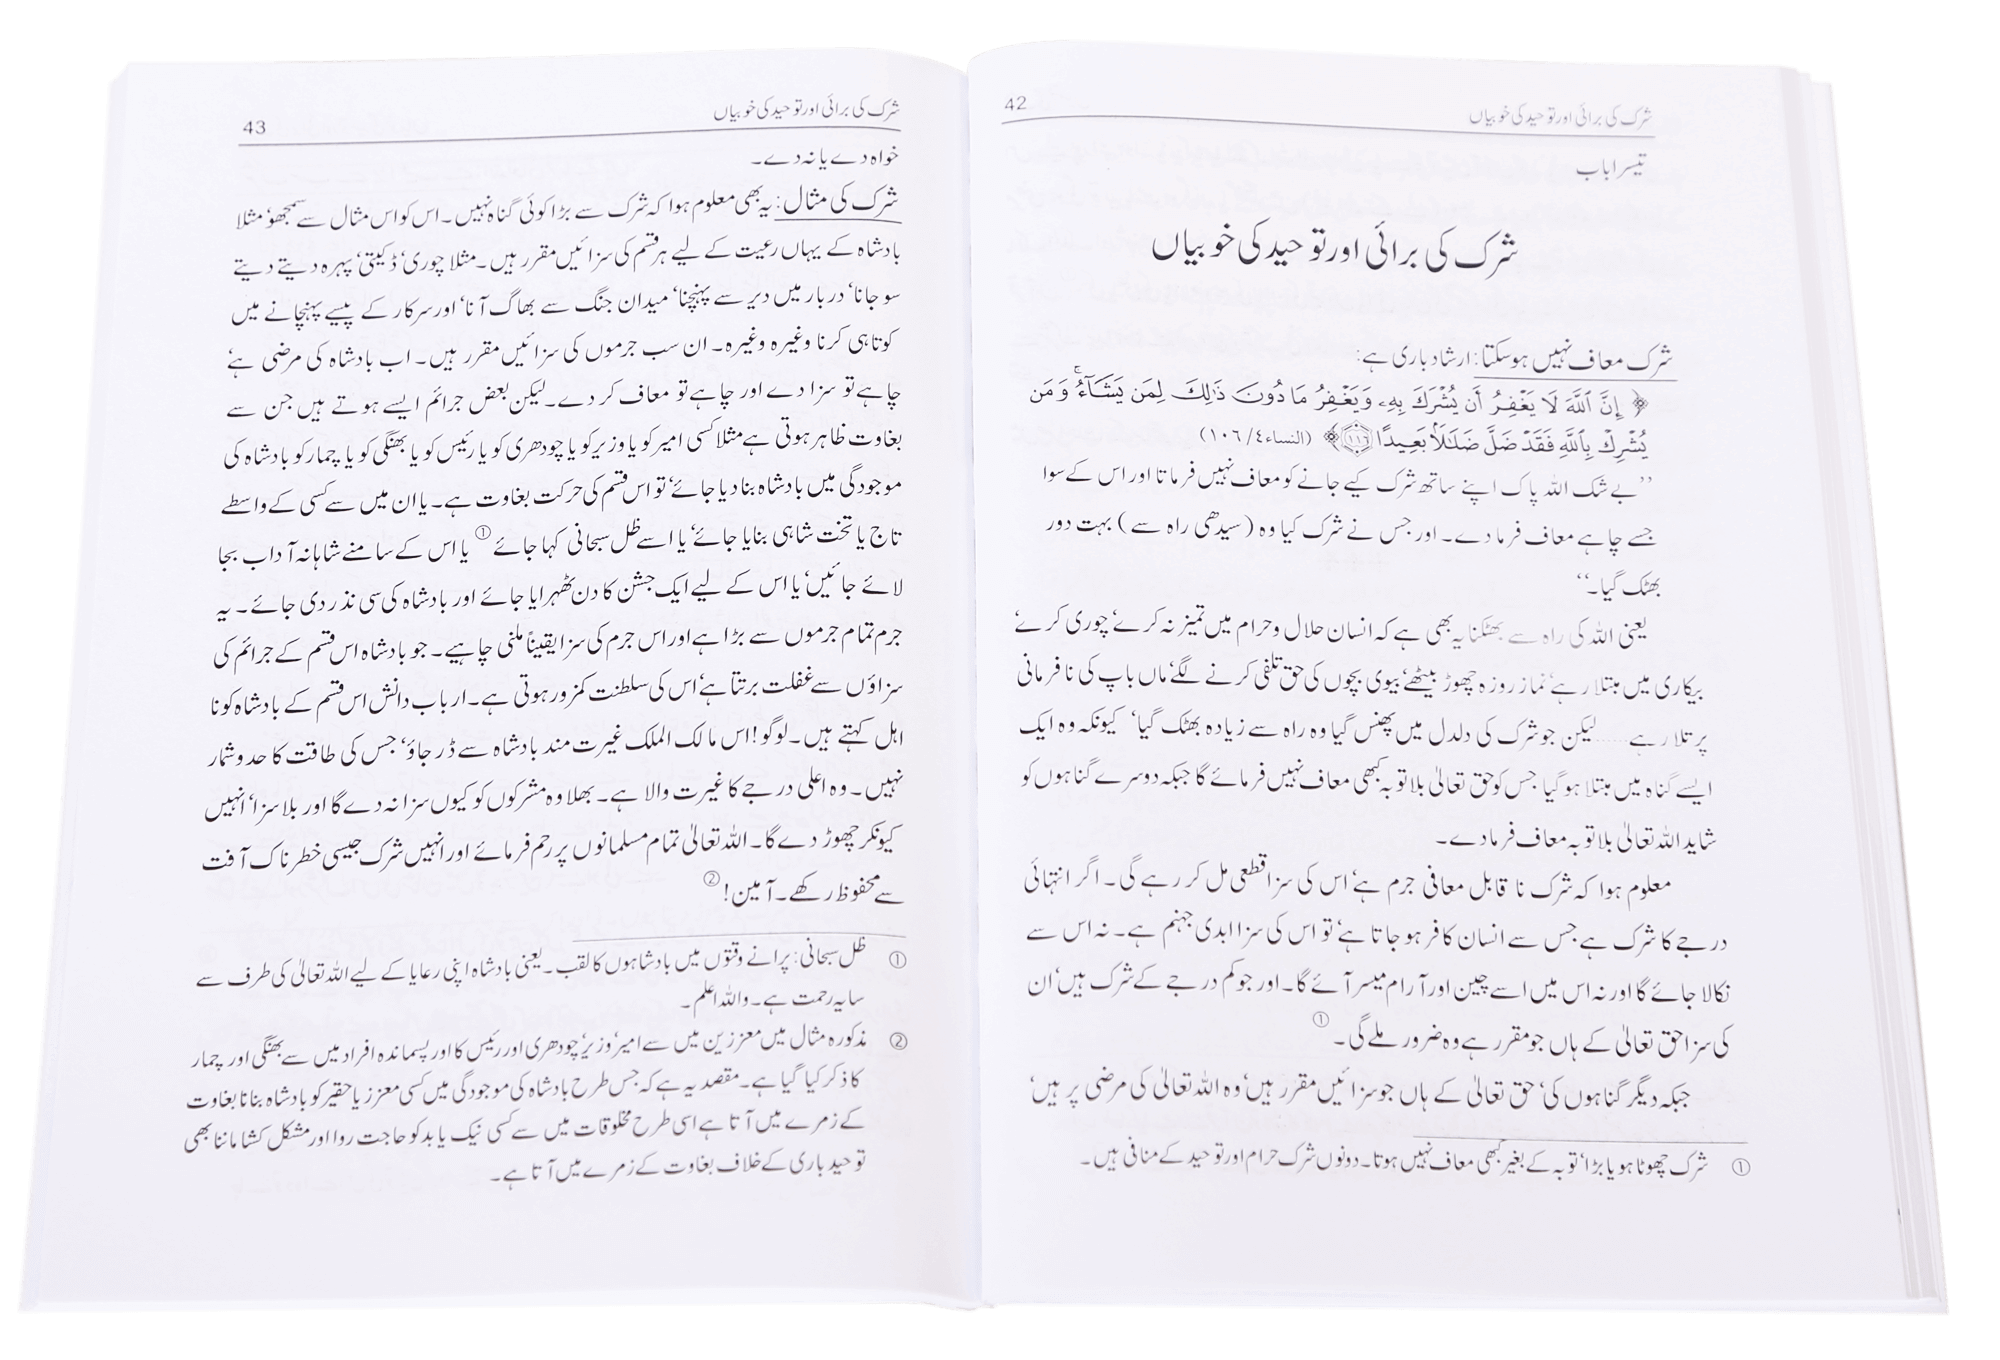 شرک کی برائی اور توحید کی خوبیاں 42
تیسرا باب
شرک کی برائی اور توحید کی خوبیاں
شرک معاف نہیں ہوسکتا: ارشاد باری ہے:
﴿ إِنَّ ٱللَّهَ لَا يَغْفِرُ أَن يُشْرَكَ بِهِۦ وَيَغْفِرُ مَا دُونَ ذَٰلِكَ لِمَن يَشَآءُ ۚ وَمَن
يُشْرِكْ بِٱللَّهِ فَقَدْ ضَلَّ ضَلَٰلًۢا بَعِيدًا ﴿١١٦﴾﴾ (النساء٤/ ١٠٦)
’’بے شک اللہ پاک اپنے ساتھ شرک کیے جانے کو معاف نہیں فرماتا اور اس کے سوا
جسے چاہے معاف فرما دے۔ اور جس نے شرک کیا وہ (سیدھی راہ سے) بہت دور
بھٹک گیا۔‘‘
یعنی اللہ کی راہ سے بھٹکنا یہ بھی ہے کہ انسان حلال و حرام میں تمیز نہ کرے‘ چوری کرے‘
بیکاری میں مبتلا رہے‘ نماز روزہ چھوڑ بیٹھے‘ بیوی بچوں کی حق تلفی کرنے لگے‘ ماں باپ کی نافرمانی
پر تلا رہے......لیکن جو شرک کی دلدل میں پھنس گیا وہ راہ سے زیادہ بھٹک گیا‘ کیونکہ وہ ایک
ایسے گناہ میں مبتلا ہو گیا جس کو حق تعالیٰ بلا توبہ کبھی معاف نہیں فرمائے گا جبکہ دوسرے گناہوں کو
شاید اللہ تعالیٰ بلا توبہ معاف فرما دے۔
معلوم ہوا کہ شرک نا قابل معافی جرم ہے‘ اس کی سزا قطعی مل کر رہے گی۔ اگر انتہائی
درجے کا شرک ہے جس سے انسان کافر ہو جاتا ہے‘ تو اس کی سزا ابدی جہنم ہے۔ نہ اس سے
نکالا جائے گا اور نہ اس میں اسے چین اور آرام میسر آئے گا۔ اور جو کم درجے کے شرک ہیں‘ ان
کی سزا حق تعالیٰ کے ہاں جو مقرر ہے وہ ضرور ملے گی۔ ①
جبکہ دیگر گناہوں کی‘ حق تعالیٰ کے ہاں جو سزائیں مقرر ہیں‘ وہ اللہ تعالیٰ کی مرضی پر ہیں‘
① شرک چھوٹا ہو یا بڑا‘ توبہ کے بغیر کبھی معاف نہیں ہوتا۔ دونوں شرک حرام اور توحید کے منافی ہیں۔
شرک کی برائی اور توحید کی خوبیاں 43
خواہ دے یا نہ دے۔
شرک کی مثال: یہ بھی معلوم ہوا کہ شرک سے بڑا کوئی گناہ نہیں۔ اس کو اس مثال سے سمجھو‘ مثلا
بادشاہ کے یہاں رعیت کے لیے ہر قسم کی سزائیں مقرر ہیں۔ مثلا چوری‘ ڈکیتی‘ پہرہ دیتے دیتے
سو جانا‘ دربار میں دیر سے پہنچنا‘ میدان جنگ سے بھاگ آنا‘ اور سرکار کے پیسے پہنچانے میں
کوتاہی کرنا وغیرہ وغیرہ۔ ان سب جرموں کی سزائیں مقرر ہیں۔ اب بادشاہ کی مرضی ہے‘
چاہے تو سزا دے اور چاہے تو معاف کر دے۔ لیکن بعض جرائم ایسے ہوتے ہیں جن سے
بغاوت ظاہر ہوتی ہے مثلا کسی امیر کو یا وزیر کو یا چودھری کو یا رئیس کو یا بھنگی کو یا چمار کو بادشاہ کی
موجودگی میں بادشاہ بنا دیا جائے‘ تو اس قسم کی حرکت بغاوت ہے۔ یا ان میں سے کسی کے واسطے
تاج یا تخت شاہی بنایا جائے‘ یا اسے ظل سبحانی کہا جائے ① یا اس کے سامنے شاہانہ آداب بجا
لائے جائیں‘ یا اس کے لیے ایک جشن کا دن ٹھہرایا جائے اور بادشاہ کی سی نذر دی جائے۔ یہ
جرم تمام جرموں سے بڑا ہے اور اس جرم کی سزا یقیناً ملنی چاہیے۔ جو بادشاہ اس قسم کے جرائم کی
سزاؤں سے غفلت برتتا ہے‘ اس کی سلطنت کمزور ہوتی ہے۔ ارباب دانش اس قسم کے بادشاہ کو نا
اہل کہتے ہیں۔ لوگو! اس مالک الملک غیرت مند بادشاہ سے ڈر جاؤ‘ جس کی طاقت کا حد و شمار
نہیں۔ وہ اعلی درجے کا غیرت والا ہے۔ بھلا وہ مشرکوں کو کیوں سزا نہ دے گا اور بلا سزا‘ انہیں
کیونکر چھوڑ دے گا۔ اللہ تعالیٰ تمام مسلمانوں پر رحم فرمائے اور انہیں شرک جیسی خطرناک آفت
سے محفوظ رکھے۔ آمین! ②
① ظل سبحانی: پرانے وقتوں میں بادشاہوں کا لقب۔ یعنی بادشاہ اپنی رعایا کے لیے اللہ تعالیٰ کی طرف سے
سایہ رحمت ہے۔ واللہ اعلم۔
② مذکورہ مثال میں معززین میں سے امیر‘ وزیر‘ چودھری اور رئیس کا اور پسماندہ افراد میں سے بھنگی اور چمار
کا ذکر کیا گیا ہے۔ مقصد یہ ہے کہ جس طرح بادشاہ کی موجودگی میں کسی معزز یا حقیر کو بادشاہ بنانا بغاوت
کے زمرے میں آتا ہے اسی طرح مخلوقات میں سے کسی نیک یا بد کو حاجت روا اور مشکل کشا ماننا بھی
توحید باری کے خلاف بغاوت کے زمرے میں آتا ہے۔